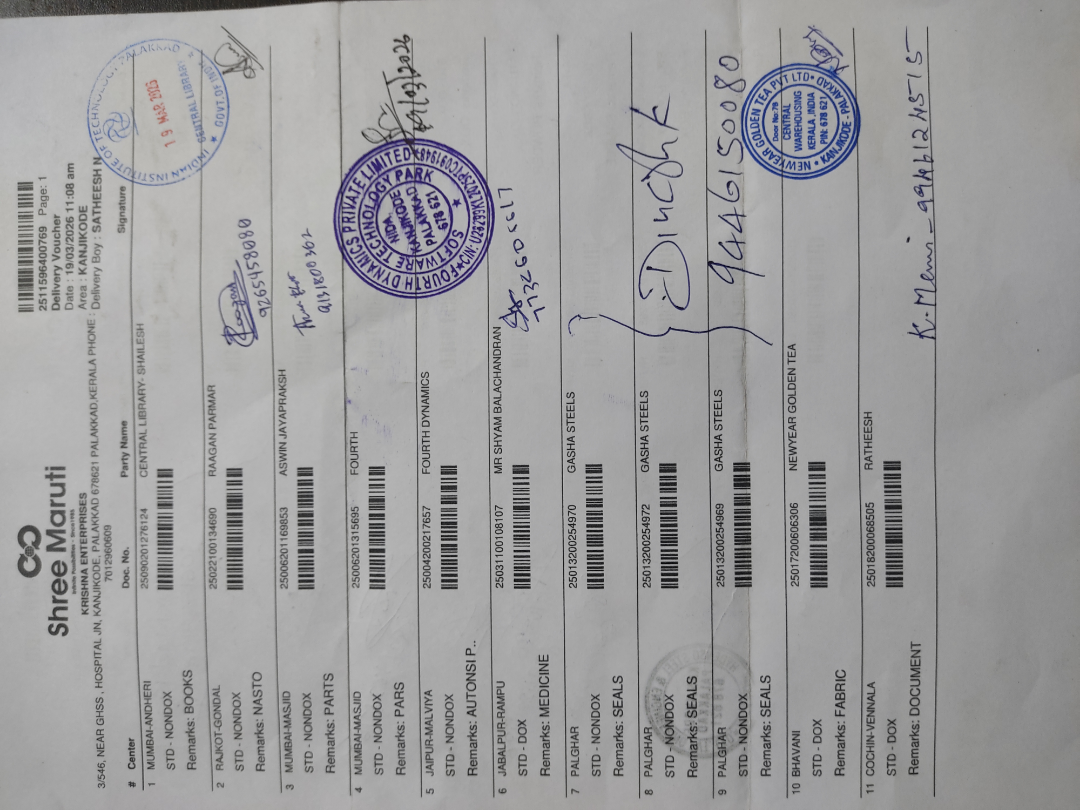 Shree Maruti
KRISHNA ENTERPRISES
3/546, NEAR GHSS , HOSPITAL JN, KANJIKODE, PALAKKAD 678621 PALAKKAD,KERALA PHONE :
7012960609
2511596400769 Page: 1
Delivery Voucher
Date : 19/03/2026 11:08 am
Area : KANJIKODE
Delivery Boy : SATHEESH N
# Center Doc. No. Party Name Signature
1 MUMBAI-ANDHERI 25090201276124 CENTRAL LIBRARY- SHAILESH
STD - NONDOX
Remarks: BOOKS
INDIAN INSTITUTE OF TECHNOLOGY PALAKKAD
19 MAR 2025
CENTRAL LIBRARY
GOVT. OF INDIA
2 RAJKOT-GONDAL 25022100134690 RAAGAN PARMAR
STD - NONDOX
Remarks: NASTO
9265458080
3 MUMBAI-MASJID 25006201169853 ASWIN JAYAPRAKSH
STD - NONDOX
Remarks: PARTS
4 MUMBAI-MASJID 25006201315695 FOURTH
STD - NONDOX
Remarks: PARS
FOURTH DYNAMICS PRIVATE LIMITED
SOFTWARE TECHNOLOGY PARK
KANJIKODE
PALAKKAD
678 621
5 JAIPUR-MALVIYA 25004200217657 FOURTH DYNAMICS
STD - NONDOX
Remarks: AUTONSI P..
6 JABALPUR-RAMPU 25031100108107 MR SHYAM BALACHANDRAN
STD - DOX
Remarks: MEDICINE
7 PALGHAR 25013200254970 GASHA STEELS
STD - NONDOX
Remarks: SEALS
8 PALGHAR 25013200254972 GASHA STEELS
STD - NONDOX
Remarks: SEALS
9 PALGHAR 25013200254969 GASHA STEELS
STD - NONDOX
Remarks: SEALS
9446150080
10 BHAVANI 25017200606306 NEWYEAR GOLDEN TEA
STD - DOX
Remarks: FABRIC
NEWYEAR GOLDEN TEA PVT LTD
Door No:79
CENTRAL
WAREHOUSING
KERALA, INDIA
PIN: 678 621
KANJIKODE - PALAKKAD
11 COCHIN-VENNALA 25018200068505 RATHEESH
STD - DOX
Remarks: DOCUMENT